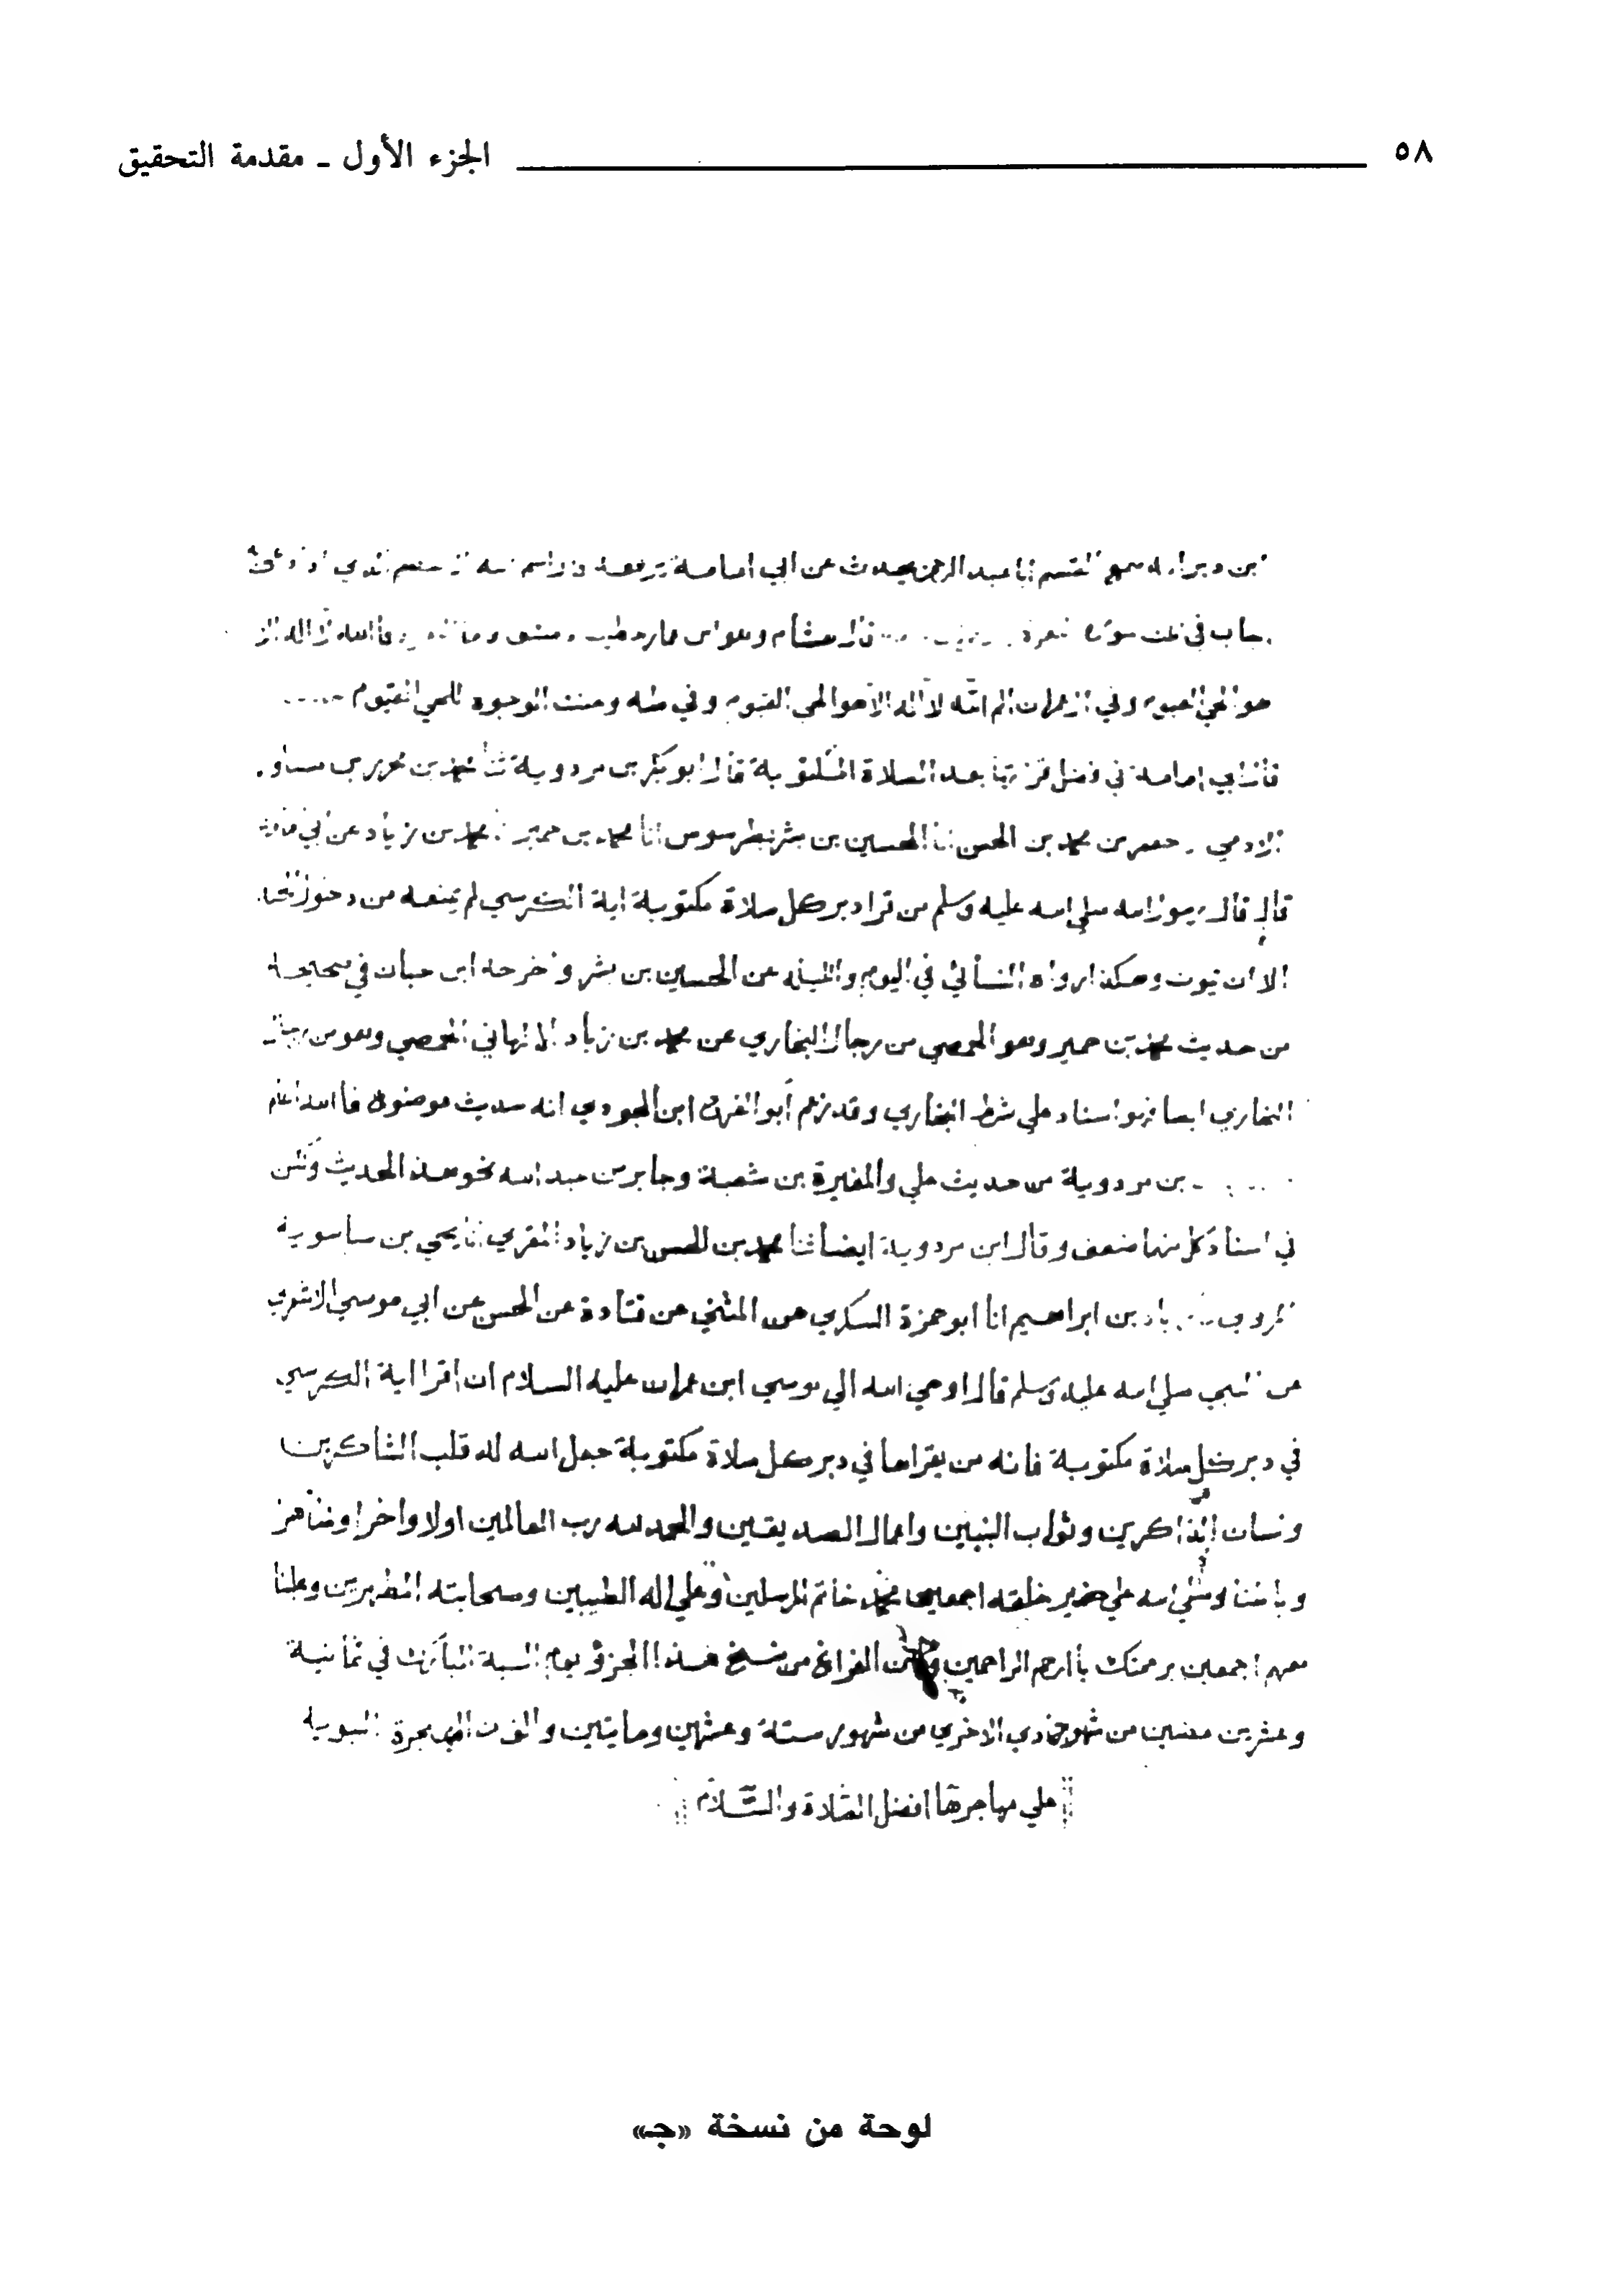 ٥٨ الجزء الأول ـ مقدمة التحقيق
بن سمع القسم ابا عبد الرحمن يحدث عن ابي امامة يرفعه
في قال هشام وهو ابن عمار خطيب دمشق
هو الحي القيوم وفي ال عمران الم الله لا اله الا هو الحي القيوم وفي طه وعنت الوجوه للحي القيوم
امامة في فضل بعد الصلاة المكتوبة قال ابو بكر بن مردوية ثنا محمد بن محرز بن مساور
الادمي جعفر بن محمد بن الحسن انا الحسين بن بشر بطرسوس انا محمد بن حمير محمد بن زياد عن ابي
قال قال رسول الله صلي الله عليه وسلم من قرا دبر كل صلاة مكتوبة اية الكرسي لم يمنعه من دخول
الا ان يموت وهكذا رواه النسائي في اليوم والليله عن الحسين بن بشر واخرجه ابن حبان في صحيحه
من حديث محمد بن حمير وهو الحمصي من رجال البخاري عن محمد بن زياد الالهاني الحمصي وهو من رجال
البخاري ايضا فهو اسناد علي شرط البخاري وقد زعم أبو الفرج ابن الجوزي انه حديث موضوع فالله اعلم
بن مردوية من حديث علي والمغيرة بن شعبة وجابر بن عبد الله نحو هذا الحديث ولكن
في اسناد كل منها ضعف وقال ابن مردوية ايضا ثنا محمد بن الحسن بن زياد المقري انا يحي بن
المروزي بن ابراهيم انا ابو حمزة السكري عن المثني عن قتادة عن الحسن عن ابي موسي الاشعري
عن النبي صلي الله عليه وسلم قال اوحي الله الي موسي ابن عمران عليه السلام ان اقرا اية الكرسي
في دبر كل صلاة مكتوبة فانه من يقراها في دبر كل صلاة مكتوبة جعل الله له قلب الشاكرين
ولسان الذاكرين وثواب النبيين واعمال الصديقين والحمد لله رب العالمين اولا واخرا وظاهرا
وباطنا وصلي الله علي خير خلقه اجمعين محمد خاتم المرسلين وعلي اله الطيبين وصحابته المطهرين وعلينا
معهم اجمعين برحمتك يا ارحم الراحمين الفراغ من نسخ هذا الجزؤ يوم المبارك في ثمانية
وعشرين مضين من شهر جمادي الاخري من شهور ستة وعشرين ومايتين والف من الهجرة النبوية
علي مهاجرها افضل الصلاة والسلام
لوحة من نسخة «جـ»